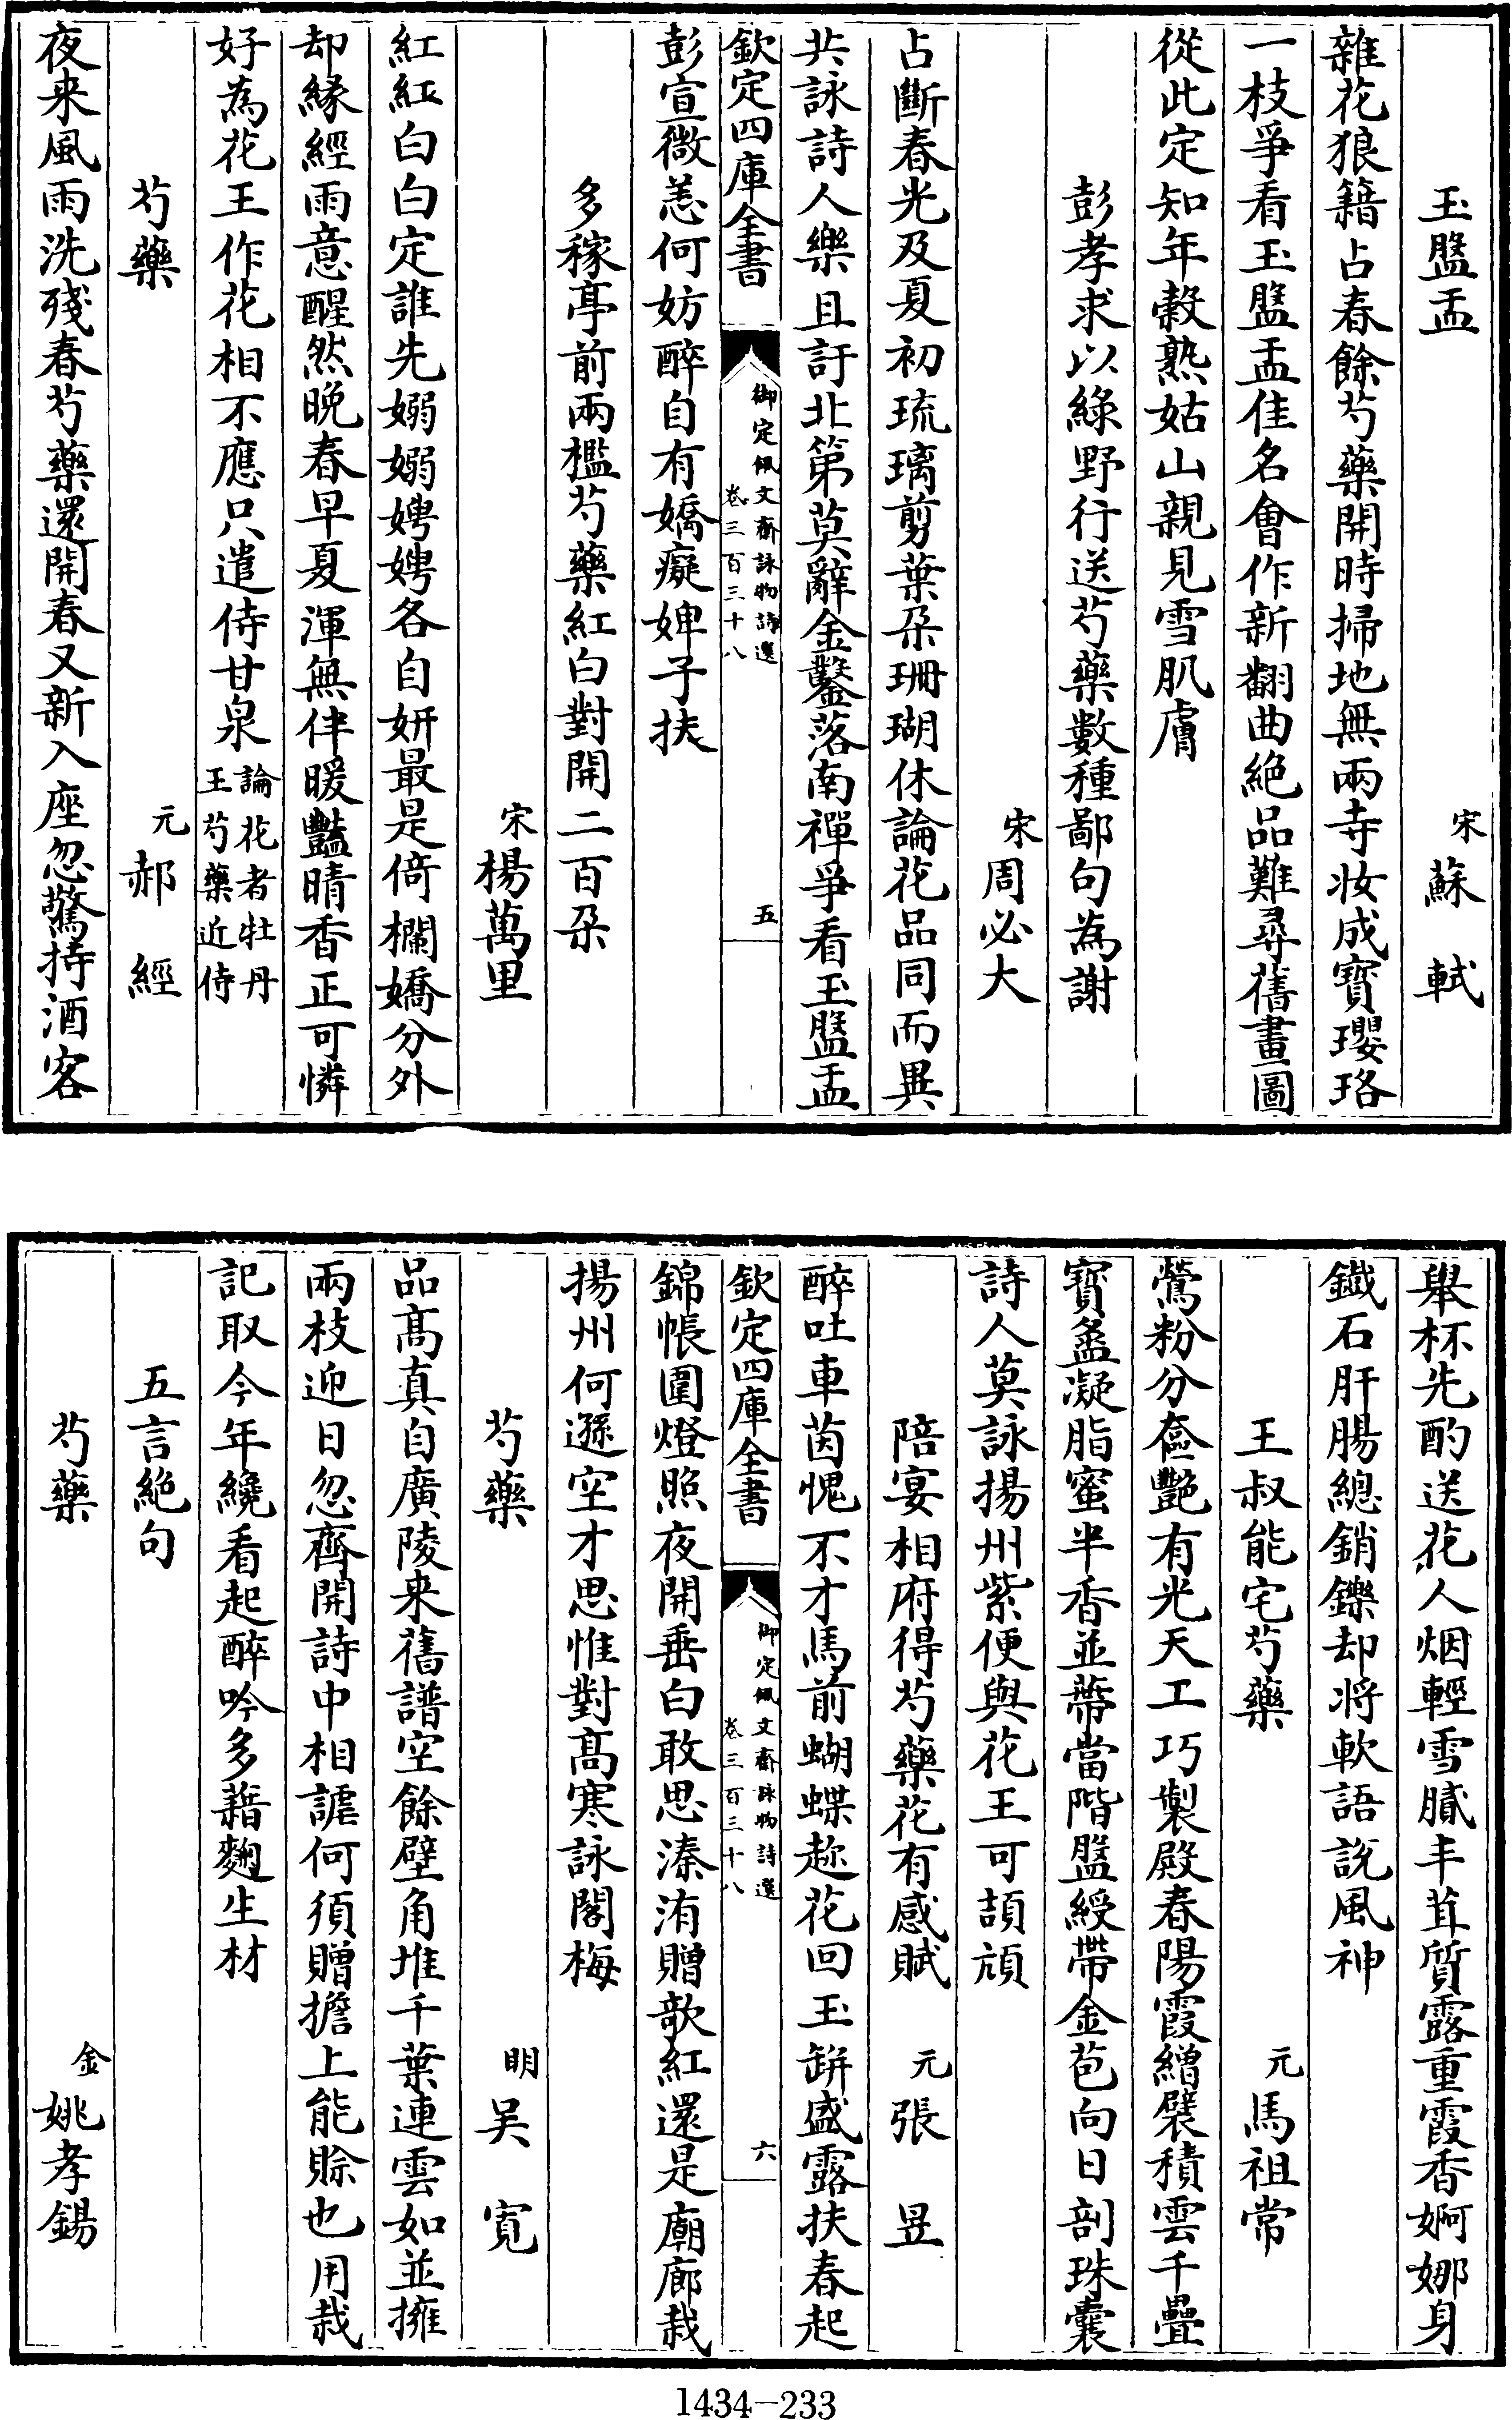 玉盤盂　宋蘇　軾
雜花狼籍占春餘芍藥開時掃地無兩寺妝成寶瓔珞
一枝爭看玉盤盂佳名會作新翻曲絶品難尋舊畫圖
從此定知年穀熟姑山親見雪肌膚
彭孝求以綠野行送芍藥數種鄙句為謝
宋周必大
占斷春光及夏初琉璃剪葉朶珊瑚休論花品同而異
共詠詩人樂且訏北第莫辭金鑿落南禪爭看玉盤盂
欽定四庫全書　御定佩文齋詠物詩選　卷三百三十八　五
彭宣微恙何妨醉自有嬌癡婢子扶
多稼亭前兩檻芍藥紅白對開二百朶
宋楊萬里
紅紅白白定誰先嫋嫋娉娉各自妍最是倚欄嬌分外
却緣經雨意醒然晚春早夏渾無伴暖豔晴香正可憐
好為花王作花相不應只遣侍甘泉論花者牡丹王芍藥近侍
芍藥　元郝　經
夜来風雨洗殘春芍藥還開春又新入座忽驚持酒客
舉杯先酌送花人烟輕雪膩丰茸質露重霞香婀娜身
鐵石肝腸總銷鑠却將軟語說風神
王叔能宅芍藥　元馬祖常
鶯粉分奩艷有光天工巧製殿春陽霞繒襞積雲千疊
寶盝凝脂蜜半香並蔕當階盤綬帶金苞向日剖珠囊
詩人莫詠揚州紫便與花王可頡頏
陪宴相府得芍藥花有感賦　元張　昱
醉吐車茵愧不才馬前蝴蝶趂花回玉缾盛露扶春起
欽定四庫全書　御定佩文齋詠物詩選　卷三百三十八　六
錦帳圍燈照夜開垂白敢思溱洧贈歌紅還是廟廊栽
揚州何遜空才思惟對高寒詠閣梅
芍藥　明吴　寬
品高真自廣陵来舊譜空餘壁角堆千葉連雲如並擁
兩枝迎日忽齊開詩中相謔何須贈擔上能賒也用栽
記取今年纔看起醉吟多藉麴生材
五言絶句
芍藥　金姚孝錫
1434-233